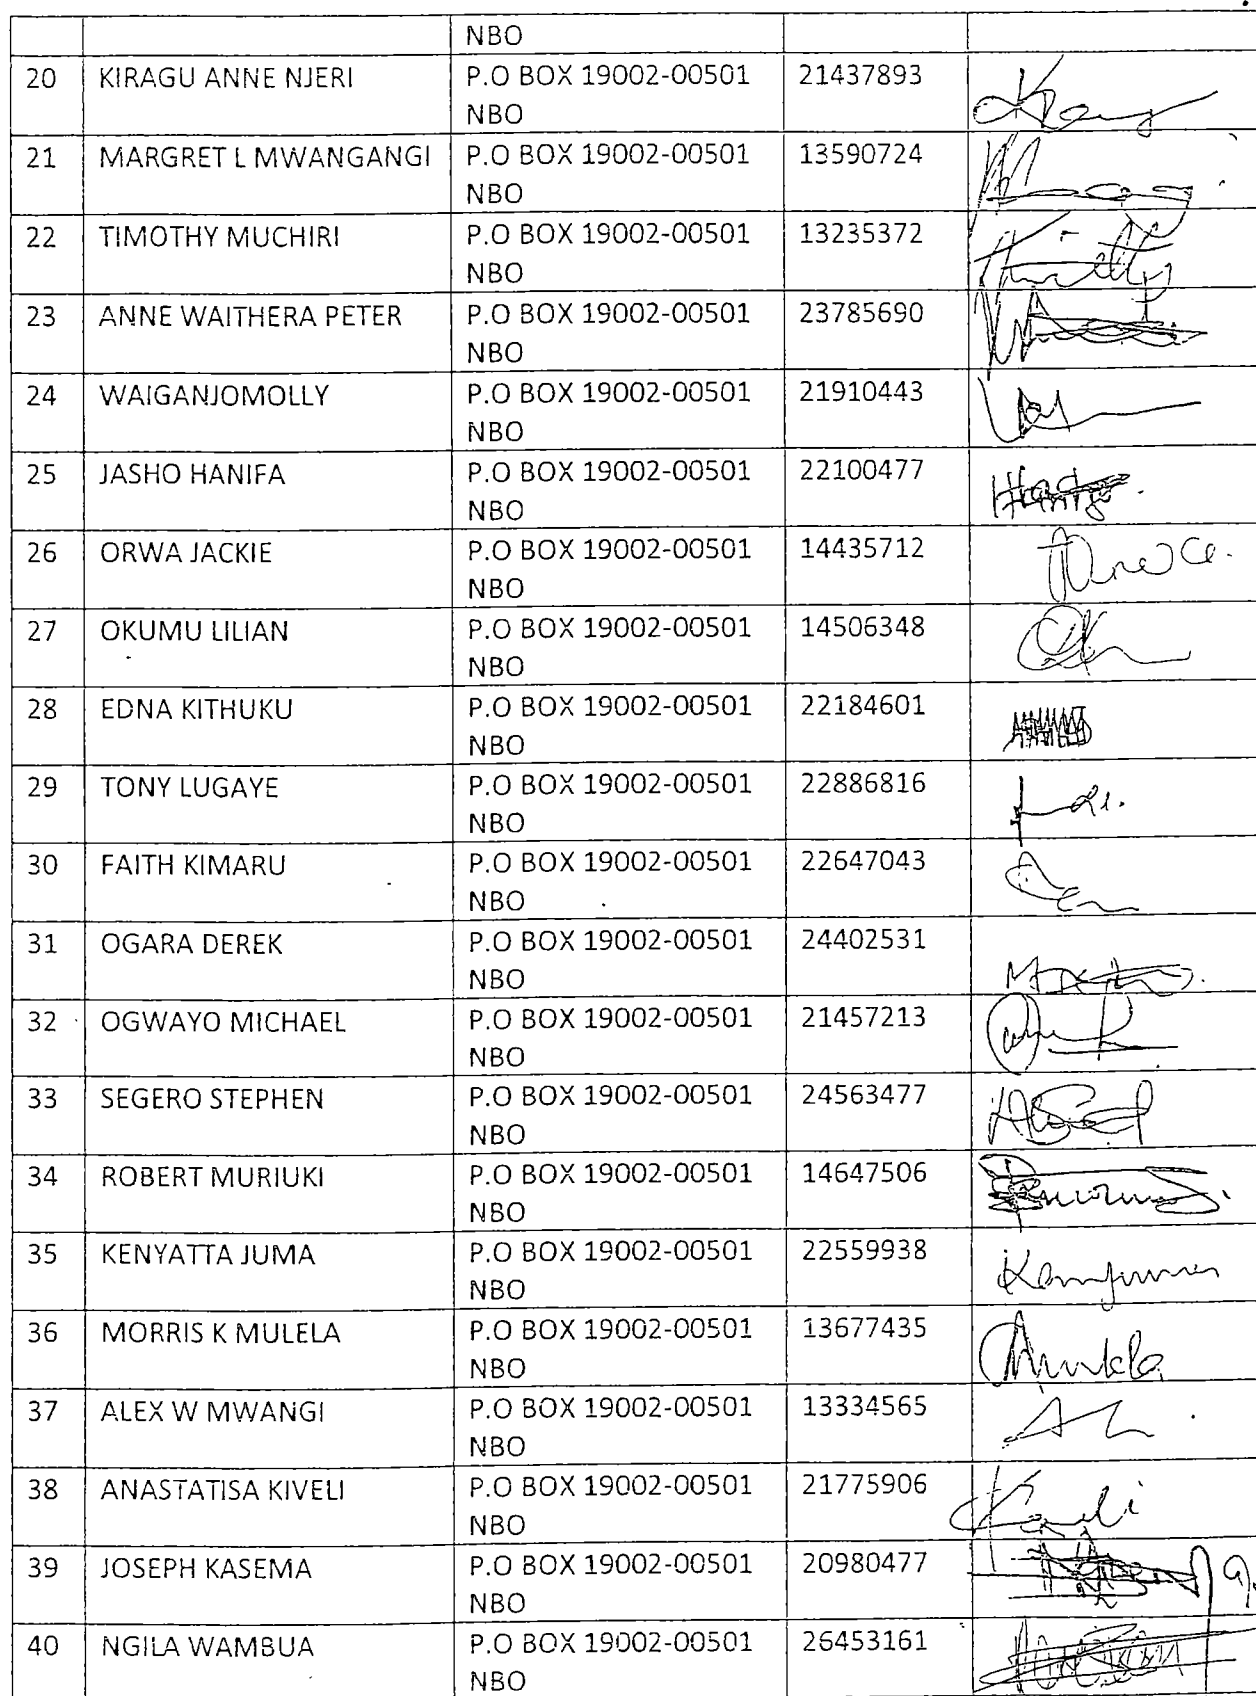 NBO
20 KIRAGU ANNE NJERI P.O BOX 19002-00501 21437893
NBO
21 MARGRET L MWANGANGI P.O BOX 19002-00501 13590724
NBO
22 TIMOTHY MUCHIRI P.O BOX 19002-00501 13235372
NBO
23 ANNE WAITHERA PETER P.O BOX 19002-00501 23785690
NBO
24 WAIGANJOMOLLY P.O BOX 19002-00501 21910443
NBO
25 JASHO HANIFA P.O BOX 19002-00501 22100477
NBO
26 ORWA JACKIE P.O BOX 19002-00501 14435712
NBO
27 OKUMU LILIAN P.O BOX 19002-00501 14506348
NBO
28 EDNA KITHUKU P.O BOX 19002-00501 22184601
NBO
29 TONY LUGAYE P.O BOX 19002-00501 22886816
NBO
30 FAITH KIMARU P.O BOX 19002-00501 22647043
NBO
31 OGARA DEREK P.O BOX 19002-00501 24402531
NBO
32 OGWAYO MICHAEL P.O BOX 19002-00501 21457213
NBO
33 SEGERO STEPHEN P.O BOX 19002-00501 24563477
NBO
34 ROBERT MURIUKI P.O BOX 19002-00501 14647506
NBO
35 KENYATTA JUMA P.O BOX 19002-00501 22559938
NBO
36 MORRIS K MULELA P.O BOX 19002-00501 13677435
NBO
37 ALEX W MWANGI P.O BOX 19002-00501 13334565
NBO
38 ANASTATISA KIVELI P.O BOX 19002-00501 21775906
NBO
39 JOSEPH KASEMA P.O BOX 19002-00501 20980477
NBO
40 NGILA WAMBUA P.O BOX 19002-00501 26453161
NBO